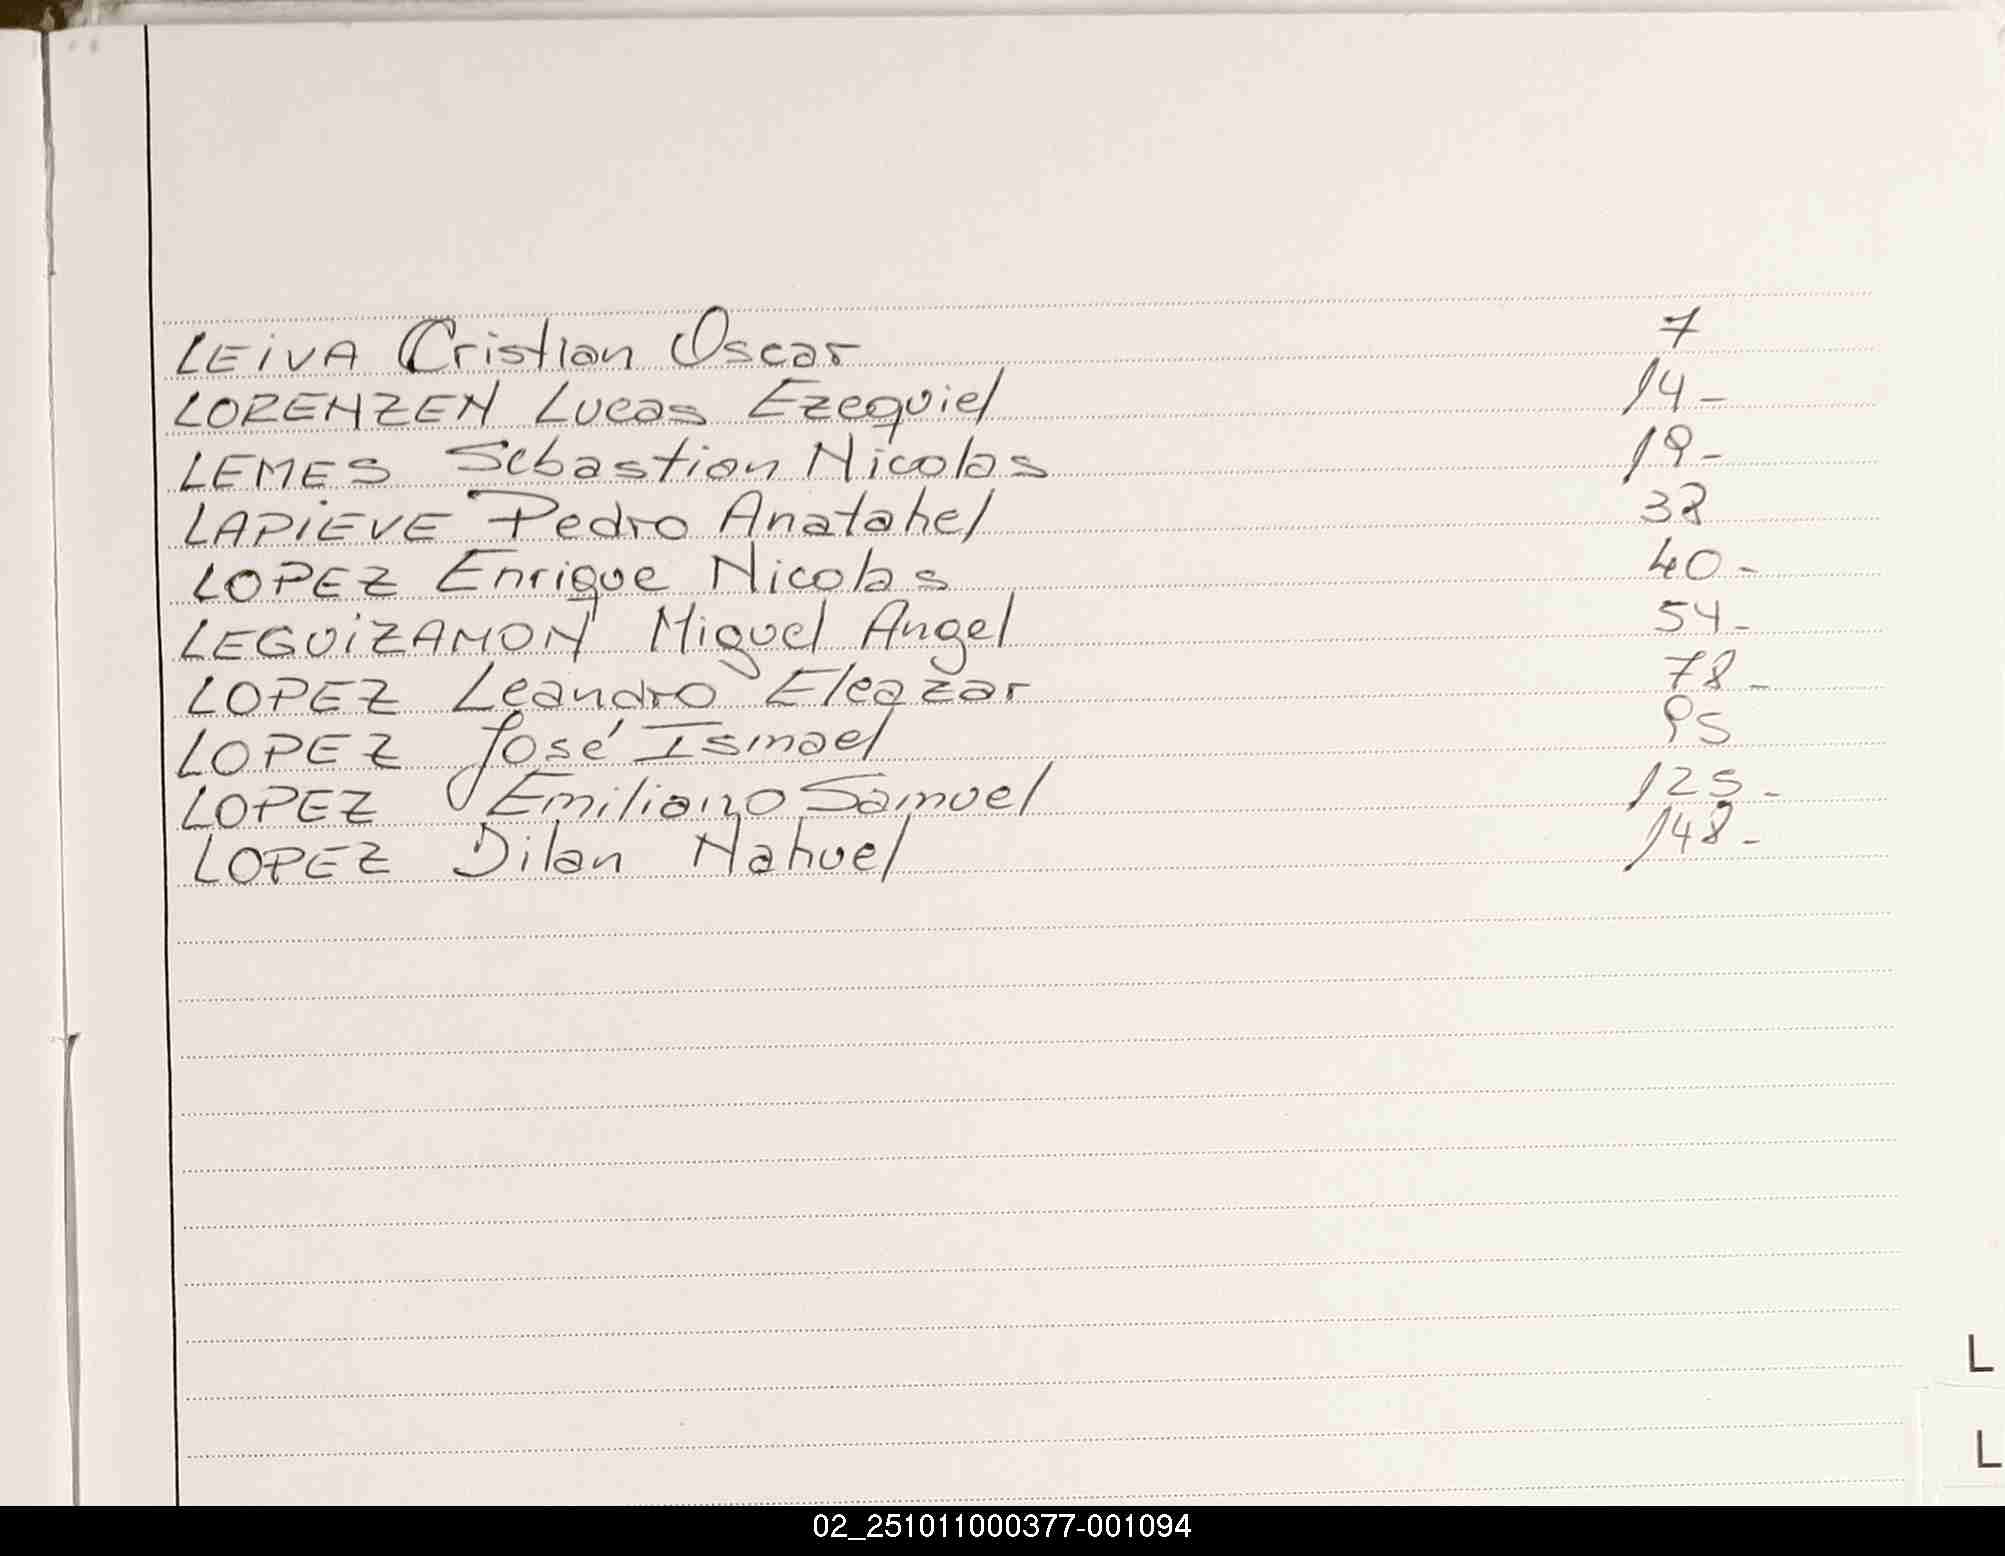 LEiVA Cristian Oscar 7
LORENZEN Lucas Ezequiel 14-
LEMES Sebastian Nicolas 19-
LAPiEVE Pedro Anatahel 38
LOPEZ Enrique Nicolas 40-
LEGUiZAMON Miguel Angel 54-
LOPEZ Leandro Eleazar 78-
LOPEZ José Ismael 95
LOPEZ Emiliano Samuel 125-
LOPEZ Dilan Nahuel 148-
L
L
02_251011000377-001094